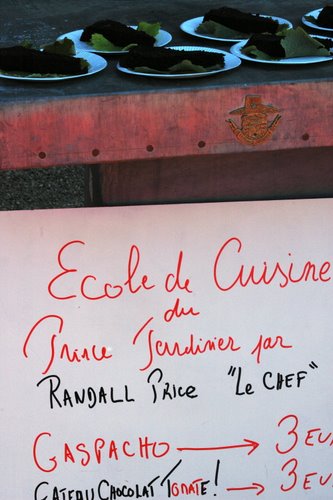 Ecole de Cuisine
du
Prince Jardinier par
RANDALL PRICE "LE CHEF"
GASPACHO → 3 EU
GATEAU CHOCOLAT TOMATE! → 3 EU